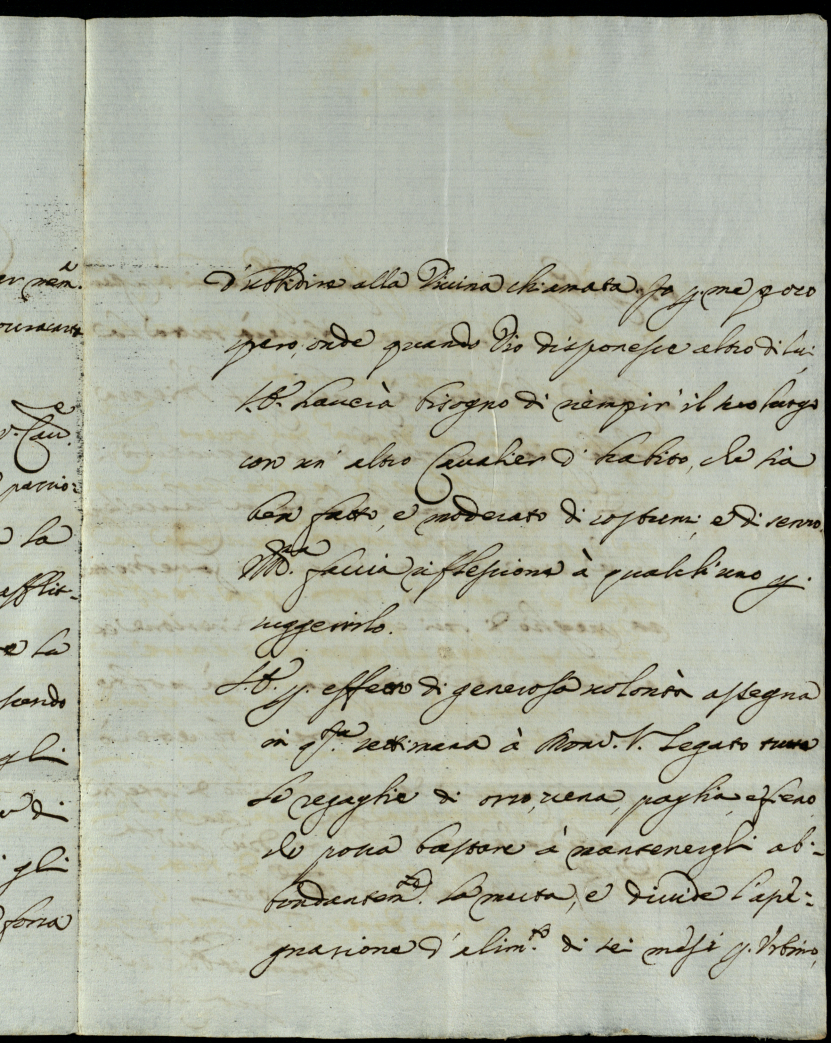 er nem.te
v. Cau.e
la
afflit-
e la
sendo
gli
di
gli
forza
d'ubbidire alla Diuina chiamata. Io p. me poco
spero, onde quando Dio disponesse altro di lui
S.A. hauerà bisogno di riempir' il suo luogo
con un' altro Cavalier d' habito, che sia
ben fatto, e moderato di costumi, e di senno.
faccia riflessione à qualch'uno p.
suggerirlo.
S.A. p. effetto di generosa uolontà assegna
in q.sta settimana à Mons. V. Legato tutte
le regaglie di orzo, uena, paglia, e fieno
che possa bastare à mantenergli ab-
bondantem.te la muta, e diuide l'asse-
gnazione d'alim.to di sei mesi p. Vrbino,